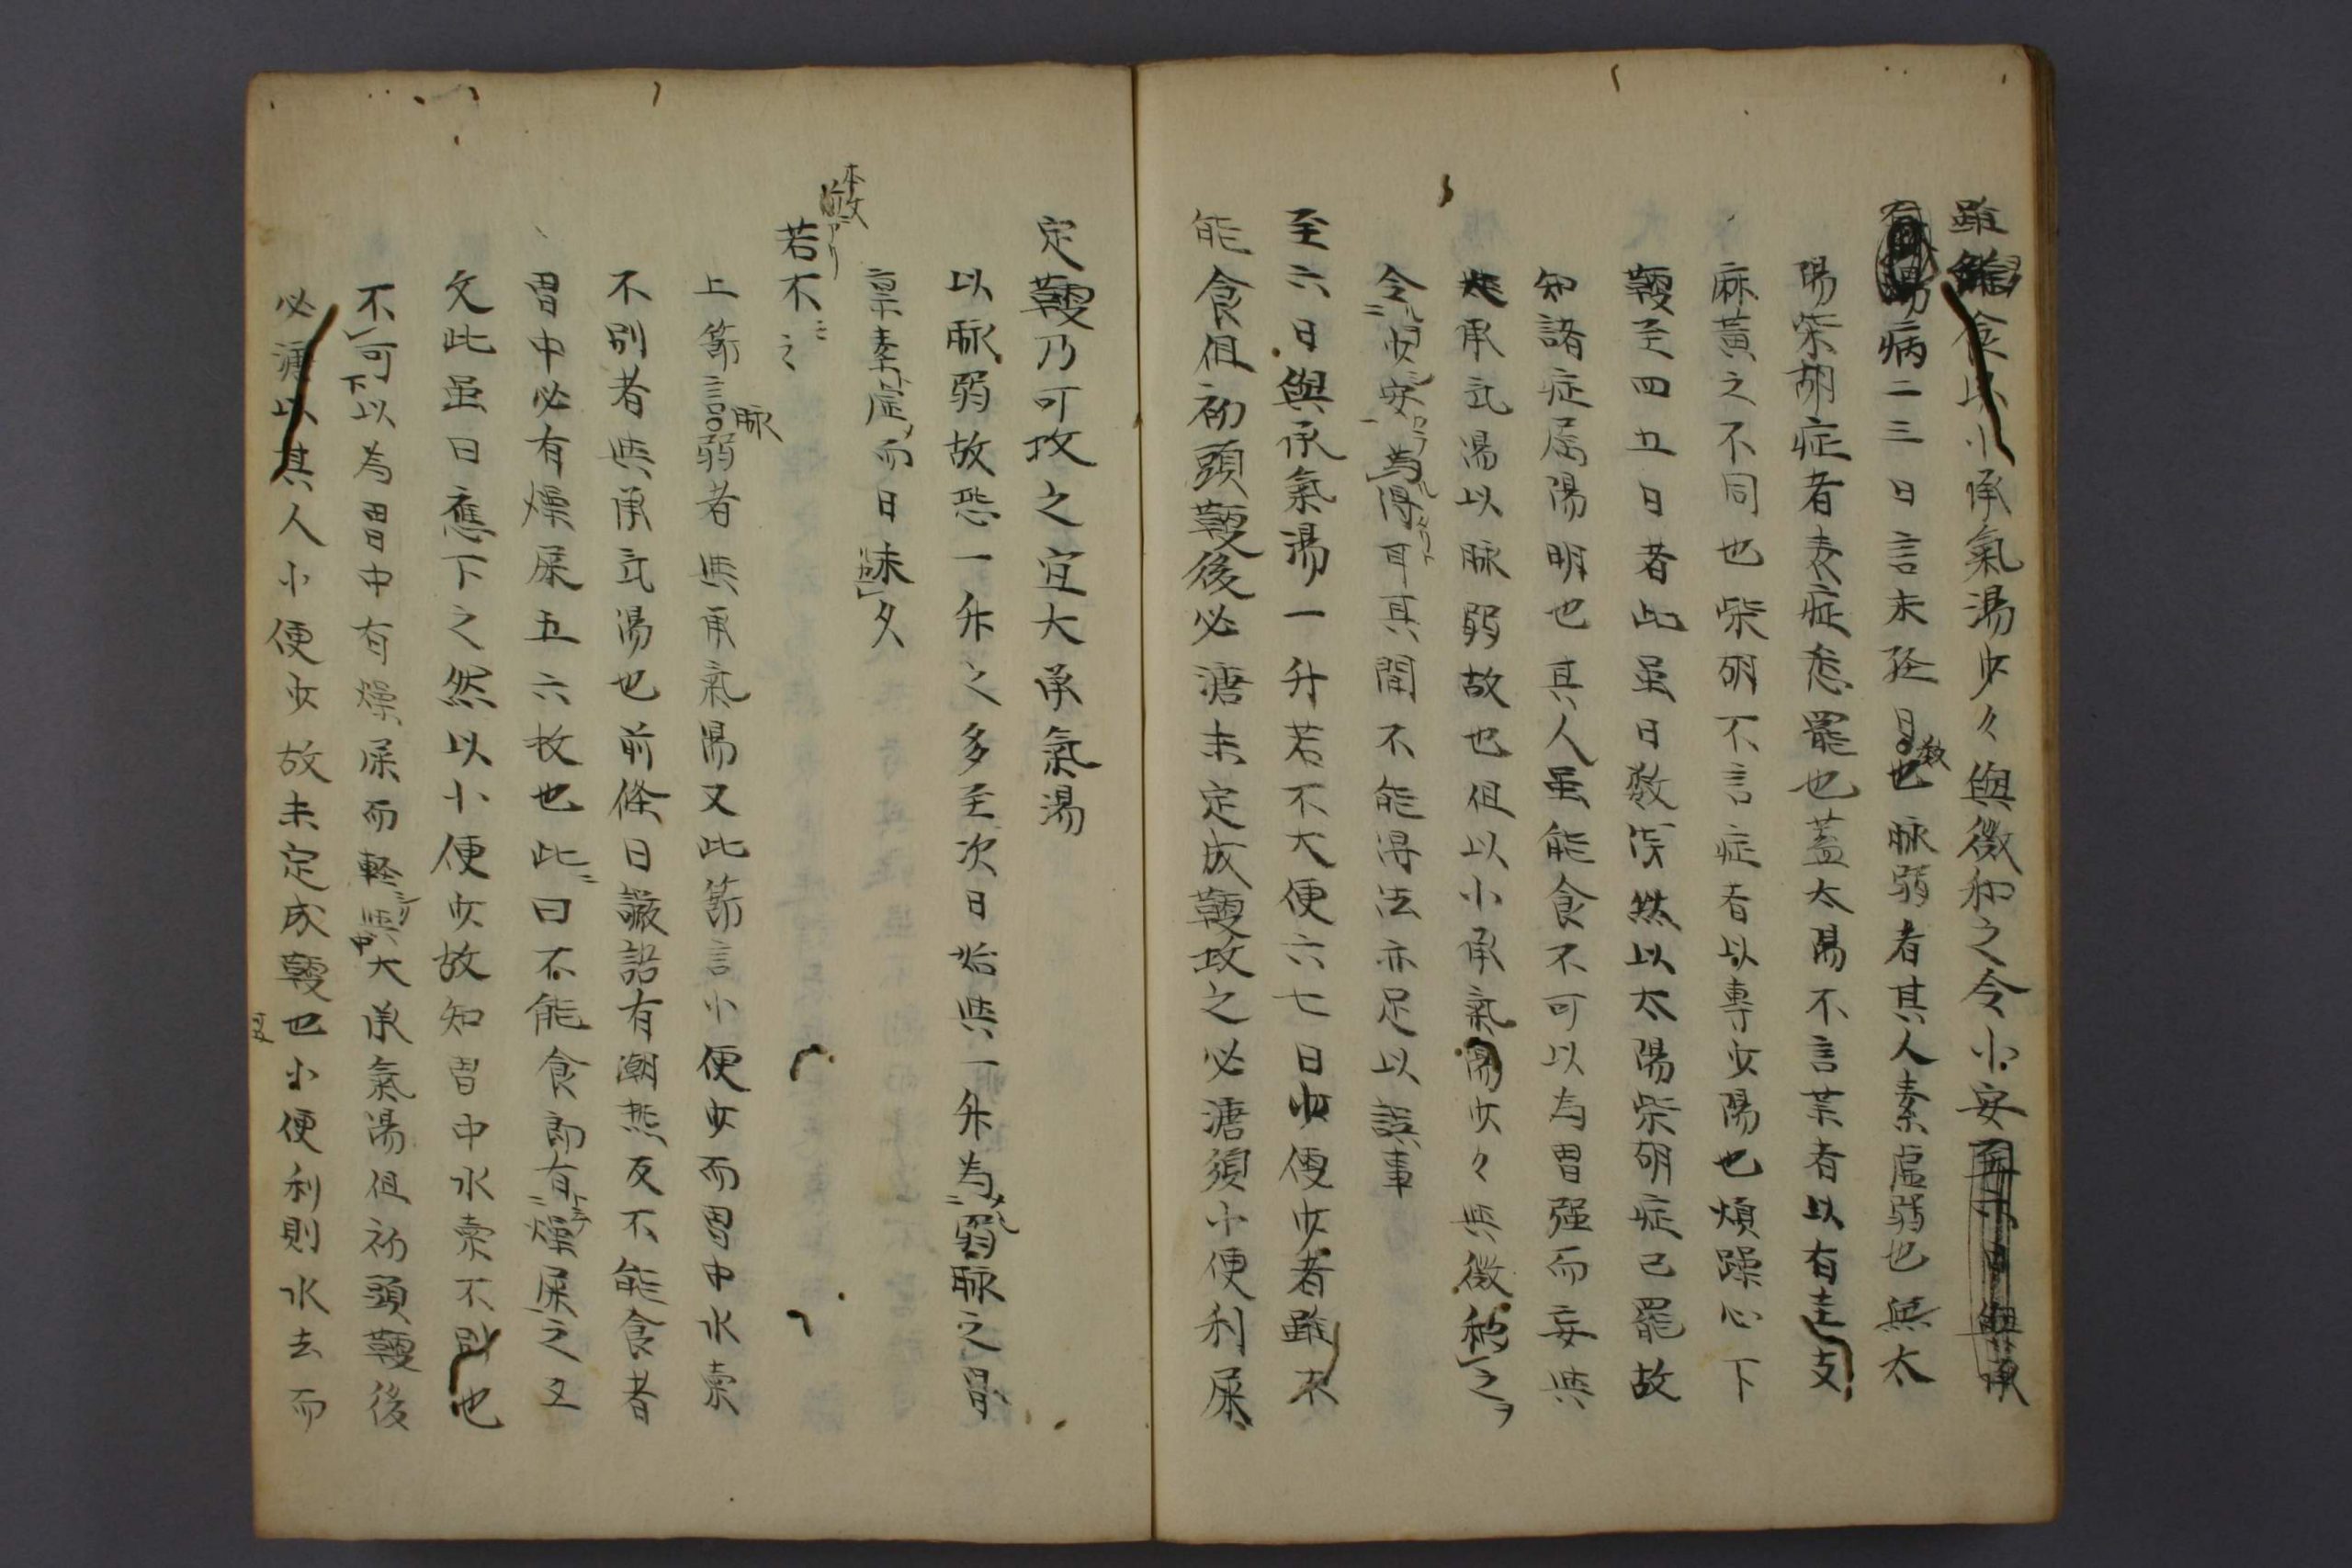 雖能食以小承氣湯少々與微和之令小安
病二三日言未経日数也脉弱者其人素虛弱也無太
陽柴胡症者表症悉罷也蓋太陽不言葉者以有圭支
麻黃之不同也柴胡不言症者以專少陽也煩躁心下
鞕至四五日者此虽日数浅然以太陽柴胡症已罷故
知諸症屬陽明也其人虽能食不可以為胃强而妄與
大承気湯以脉弱故也但以小承氣湯少々與微和之ヲ
令少安為得耳其間不能得法亦足以誤事
至六日與承氣湯一升若不大便六七日少便少者雖不
能食但初頭鞕後必溏未定成鞕攻之必溏須小便利屎
定鞕乃可攻之宜大承氣湯
以脉弱故恐一升之多至次日始與一升為弱脉之胃
稟素虛而日未久
若不之
上節言脉弱者與承氣湯又此節言小便少而胃中水索
不別者與承気湯也前條曰譫語有潮熱反不能食者
胃中必有燥屎五六枚也此曰不能食即有燥屎之又
文此虽曰應下之然以小便少故知胃中水索不別也
不可以為胃中有燥屎而輕與大承氣湯但初頭鞕後
必溏以其人小便少故未定成鞕也小便利則水去而